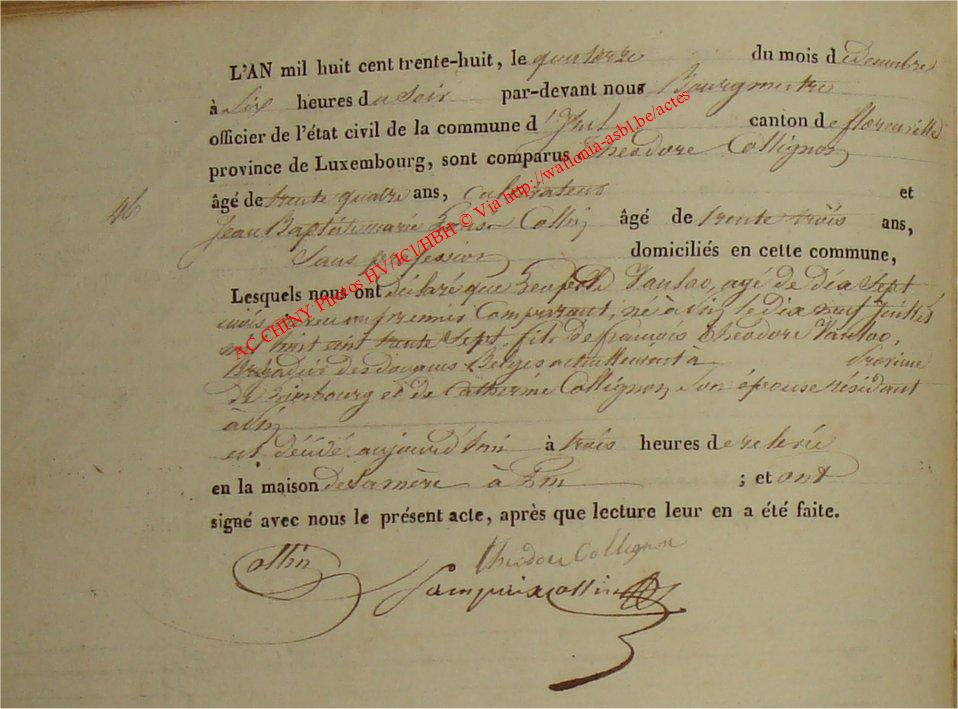 L'AN mil huit cent trente-huit, le quatorze du mois de decembre
à Six heures du Soir par-devant nous Bourgmestre
officier de l'état civil de la commune d' canton de florenville
province de Luxembourg, sont comparus Theodore Collignon
46
âgé de trente quatre ans, cultivateur et
Jean Baptiste marie Collin âgé de trente trois ans,
Sans profession domiciliés en cette commune,
Lesquels nous ont déclaré que agé de dix Sept
mois, premier Comparant, né à le dix neuf Juillet
huit cent trente Sept, fils de françois Theodore
des douanes Belges actuellement a
de Limbourg et de Catherine Collignon Son épouse résidant
à
est décédé aujourd'hui à trois heures de relevée
en la maison de Sa mère à ; et ont
signé avec nous le présent acte, après que lecture leur en a été faite.
Theodore Collignon
Collin
AC CHINY Photos HV/ICI/HBH © Via http://wallonia-asbl.be/actes